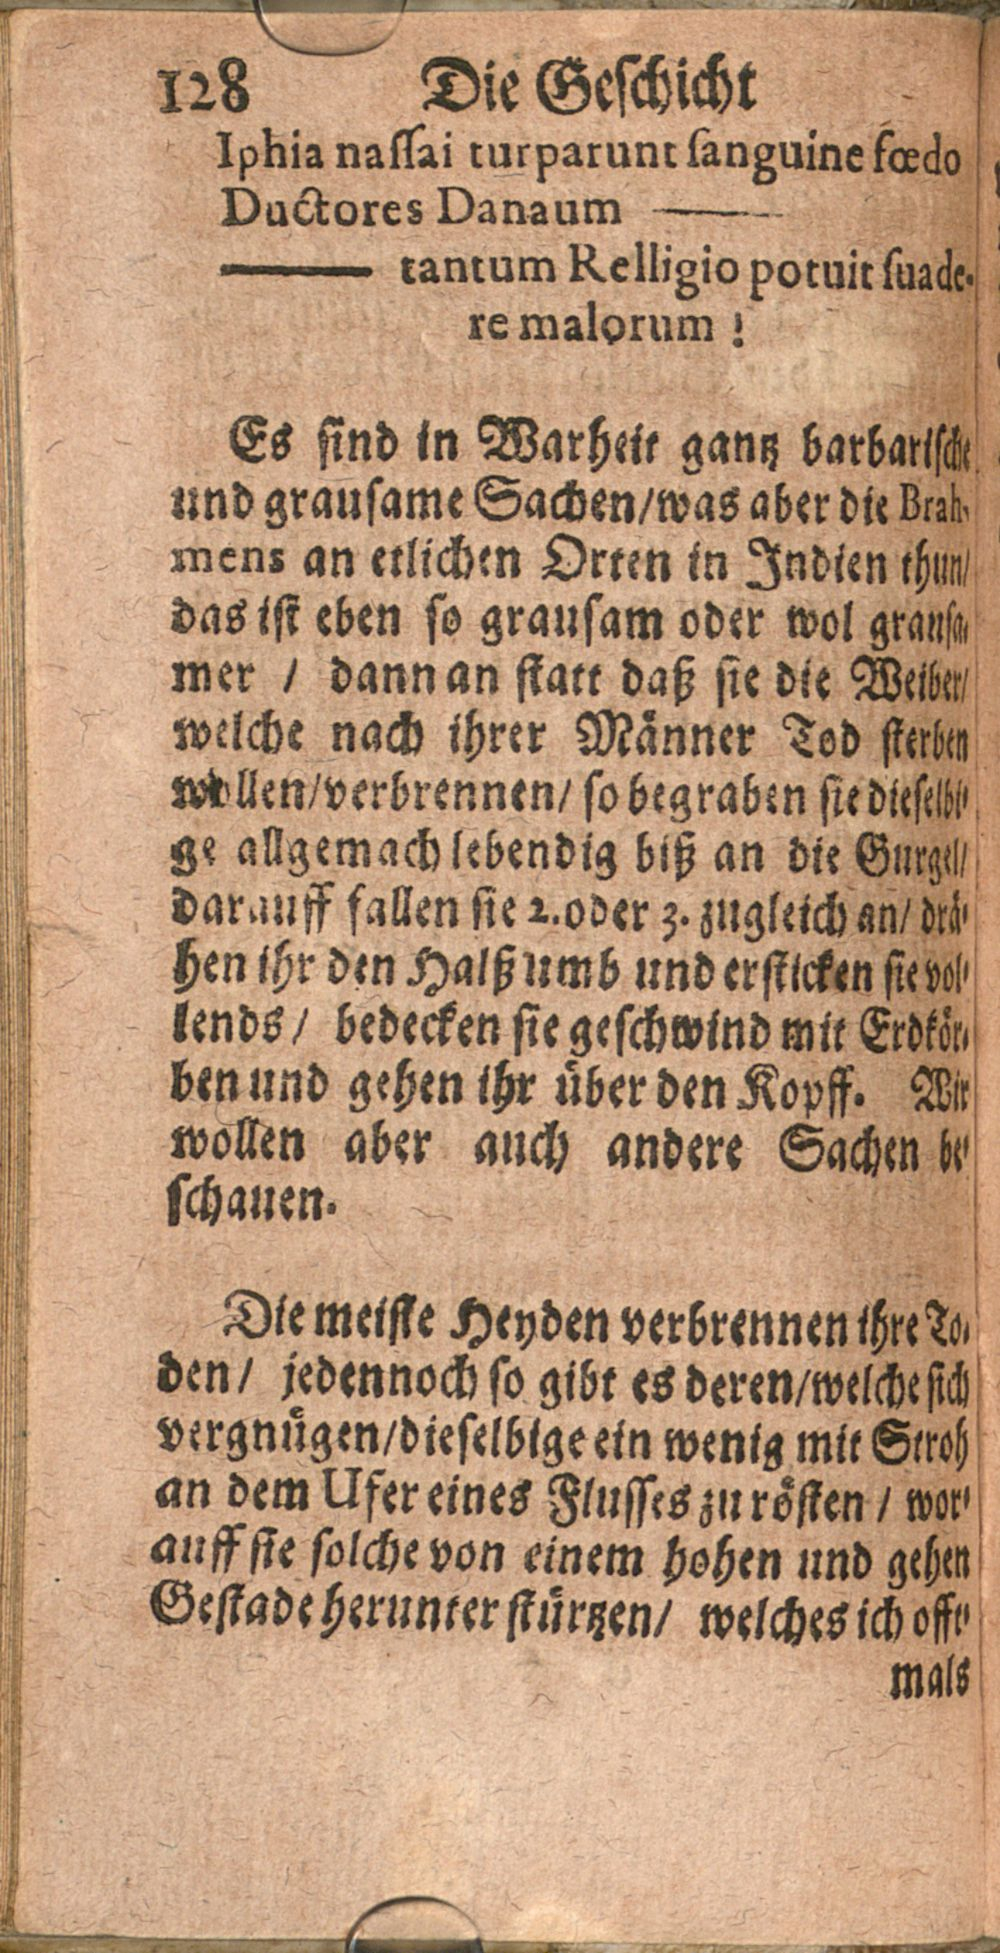 128 Die Geſchicht
Iphia naſſai turparunt ſanguine fœdo
Ductores Danaum ———
——— tantum Relligio potuit ſuade-
re malorum !
Es ſind in Warheit gantz barbariſche
und grauſame Sachen/was aber die Brah-
mens an etlichen Orten in Indien thun/
das iſt eben ſo grauſam oder wol grauſa-
mer / dann an ſtatt daß ſie die Weiber/
welche nach ihrer Männer Tod ſterben
wollen/verbrennen/ ſo begraben ſie dieſelbi-
ge allgemach lebendig biß an die Gurgel/
darauff fallen ſie 2. oder 3. zugleich an/ drä-
hen ihr den Halß umb und erſticken ſie vol-
lends/ bedecken ſie geſchwind mit Erdkör-
ben und gehen ihr über den Kopff. Wir
wollen aber auch andere Sachen be-
ſchauen.
Die meiſte Heyden verbrennen ihre To-
den/ jedennoch ſo gibt es deren/welche ſich
vergnügen/dieſelbige ein wenig mit Stroh
an dem Ufer eines Fluſſes zu röſten / wor-
auff ſie ſolche von einem hohen und gehen
Geſtade herunter ſtürtzen/ welches ich offt-
mals